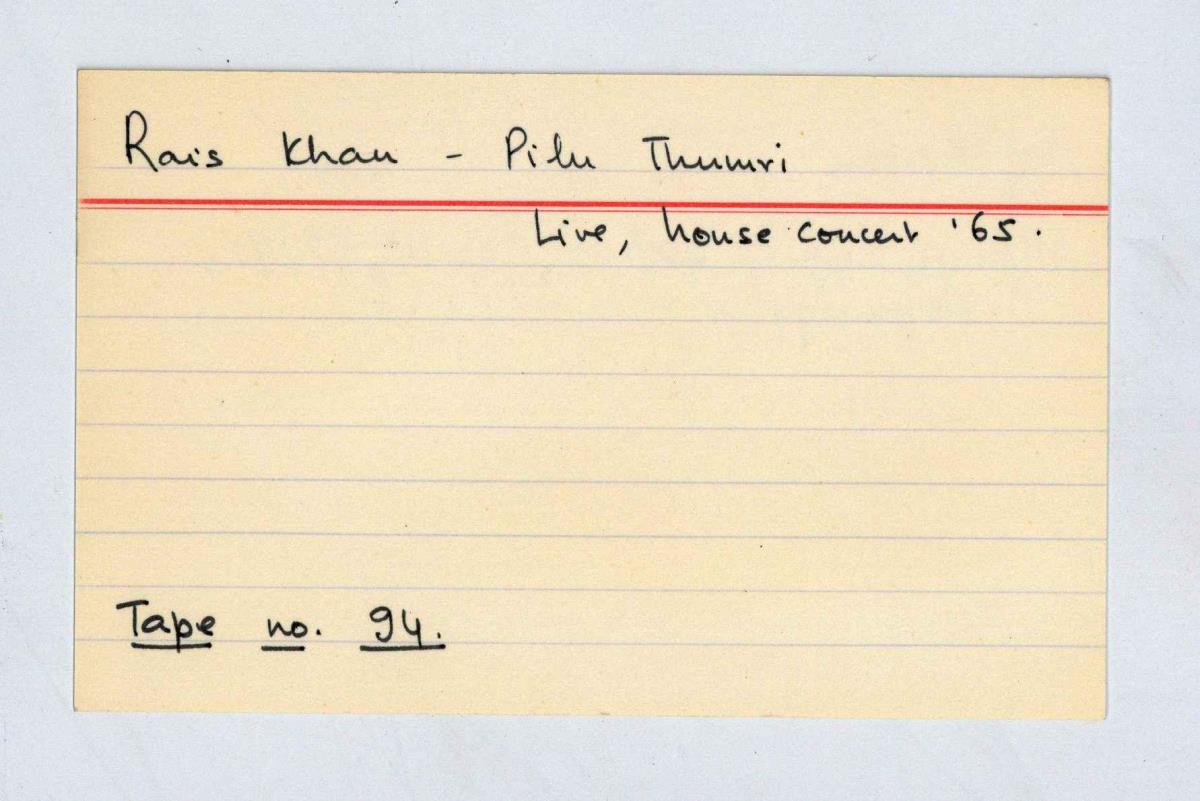 Rais Khan - Pilu Thumri
Live, house concert '65.
Tape no. 94.